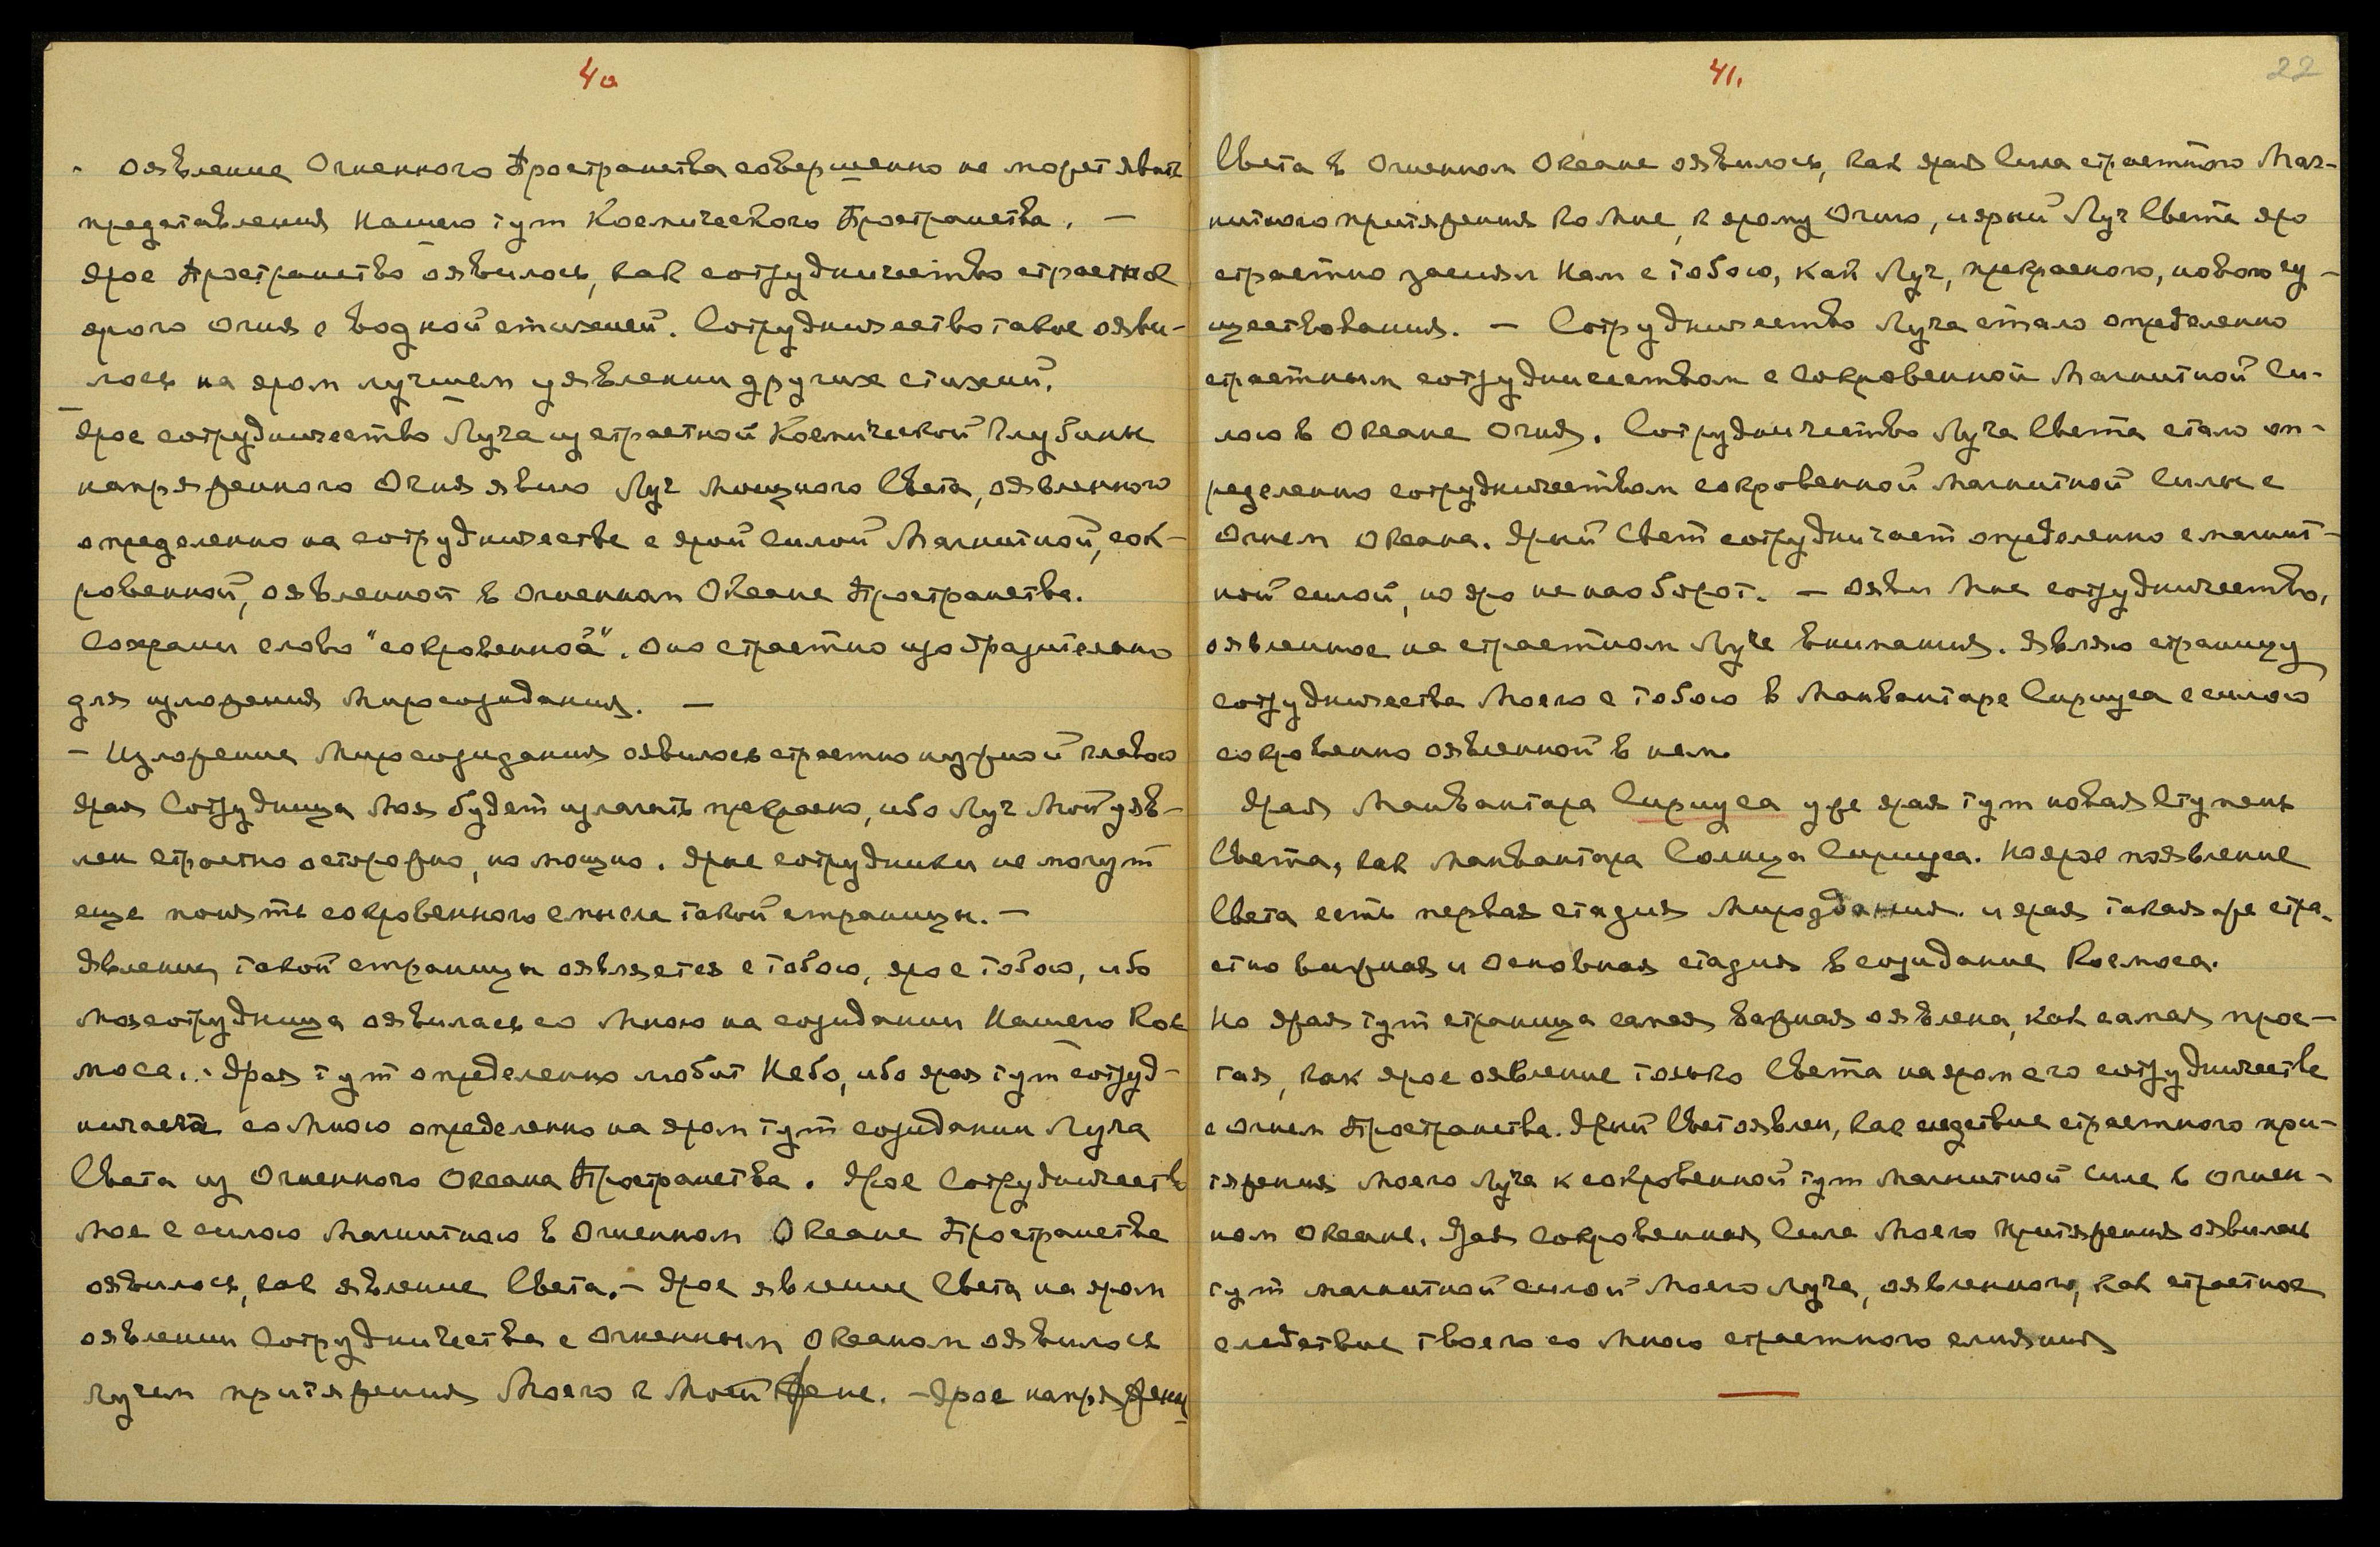 40
Оявление Огненного Пространства совершенно не может явить
представления Нашего тут Космического Пространства. —
Ярое Пространство оявилось, как сотрудничество страстное
ярого Огня с водной стихией. Сотрудничество такое ояви-
лось на яром лучшем уявлении других стихий.
Ярое сотрудничество Луча из страстной Космической Глубины
напряженного Огня явило Луч Мощного Света, оявленного
определенно на сотрудничестве с ярой Силой Магнитной, сок-
ровенной, оявленной в Огненном Океане Пространства.
Сохрани слово "сокровенной". Оно страстно изобразительно
для изложения Миросозидания. —
— Изложение Миросозидания оявилось страстно нужной главою
Ярая Сотрудница Моя будет излагать прекрасно, ибо Луч Мой уяв-
лен страстно осторожно, но мощно. Ярые сотрудники не могут
еще понять сокровенного смысла такой страницы. —
Явление такой страницы оявляется с тобою, ярое с тобою, ибо
Моя сотрудница оявилась со Мною на созидании Нашего Кос
моса. . Ярая тут определенно любит Небо, ибо ярая тут сотруд-
ничает со Мною определенно на яром тут созидании Луча
Света из Огненного Океана Пространства. Ярое Сотрудничеств
Мое с силою Магнитною в Огненном Океане Пространства
оявилось, как явление Света. — Ярое явление Света на яром
оявлении Сотрудничества с Огненным Океаном оявилось
Лучем притяжения Моего к Моей Жене. — Ярое напряжени
41.
22
Света в Огненном Океане оявилось, как ярая Сила страстного Маг-
нитного притяжения ко Мне, к ярому Огню, и ярый Луч Света яро
страстно засиял Нам с тобою, как Луч, прекрасного, нового су-
ществования. — Сотрудничество Луча стало определенно
страстным сотрудничеством с Сокровенной Магнитной Си-
лою в Океане Огня. Сотрудничество Луча Света стало оп-
ределенно сотрудничеством сокровенной магнитной Силы с
Огнем Океана. Ярый Свет сотрудничает определенно с магнит-
ной силой, но яро не наоборот. — Ояви Мне сотрудничество,
оявленное на страстном Луче внимания. Являю страницу
сотрудничества Моего с тобою в Манвантаре Сириуса с силою
сокровенно оявленной в нем.
Ярая Манвантара Сириуса уже ярая тут новая Ступень
Света, как Манвантара Солнца Сириуса. Но ярое появление
Света есть первая стадия Мироздания. и ярая такая же стра-
стно важная и Основная стадия в созидание Космоса.
Но ярая тут страница самая важная оявлена, как самая прос-
тая, как ярое оявление только Света на яром его сотрудничестве
с огнем Пространства. Ярый Свет оявлен, как следствие страстного при-
тяжения Моего Луча к сокровенной тут Магнитной Силе в Огнен-
ном Океане. Ярая Сокровенная Сила Моего Притяжения оявилась
тут магнитной силой Моего Луча, оявленного, как страстное
следствие твоего со Мною страстного слияния